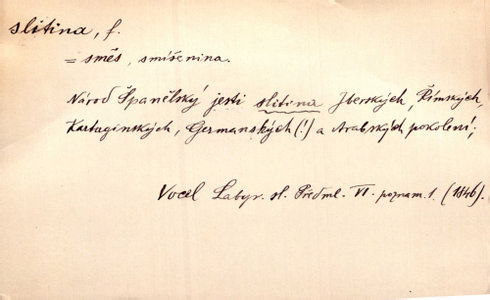 slitina, f.
= směs, smíšenina.
Národ Španělský jesti slitina Iberských, Římských,
Kartaginských, Germanských (!) a Arabských pokolení;
Vocel Labyr. sl. Předml. VI. poznam. 1. (1846).